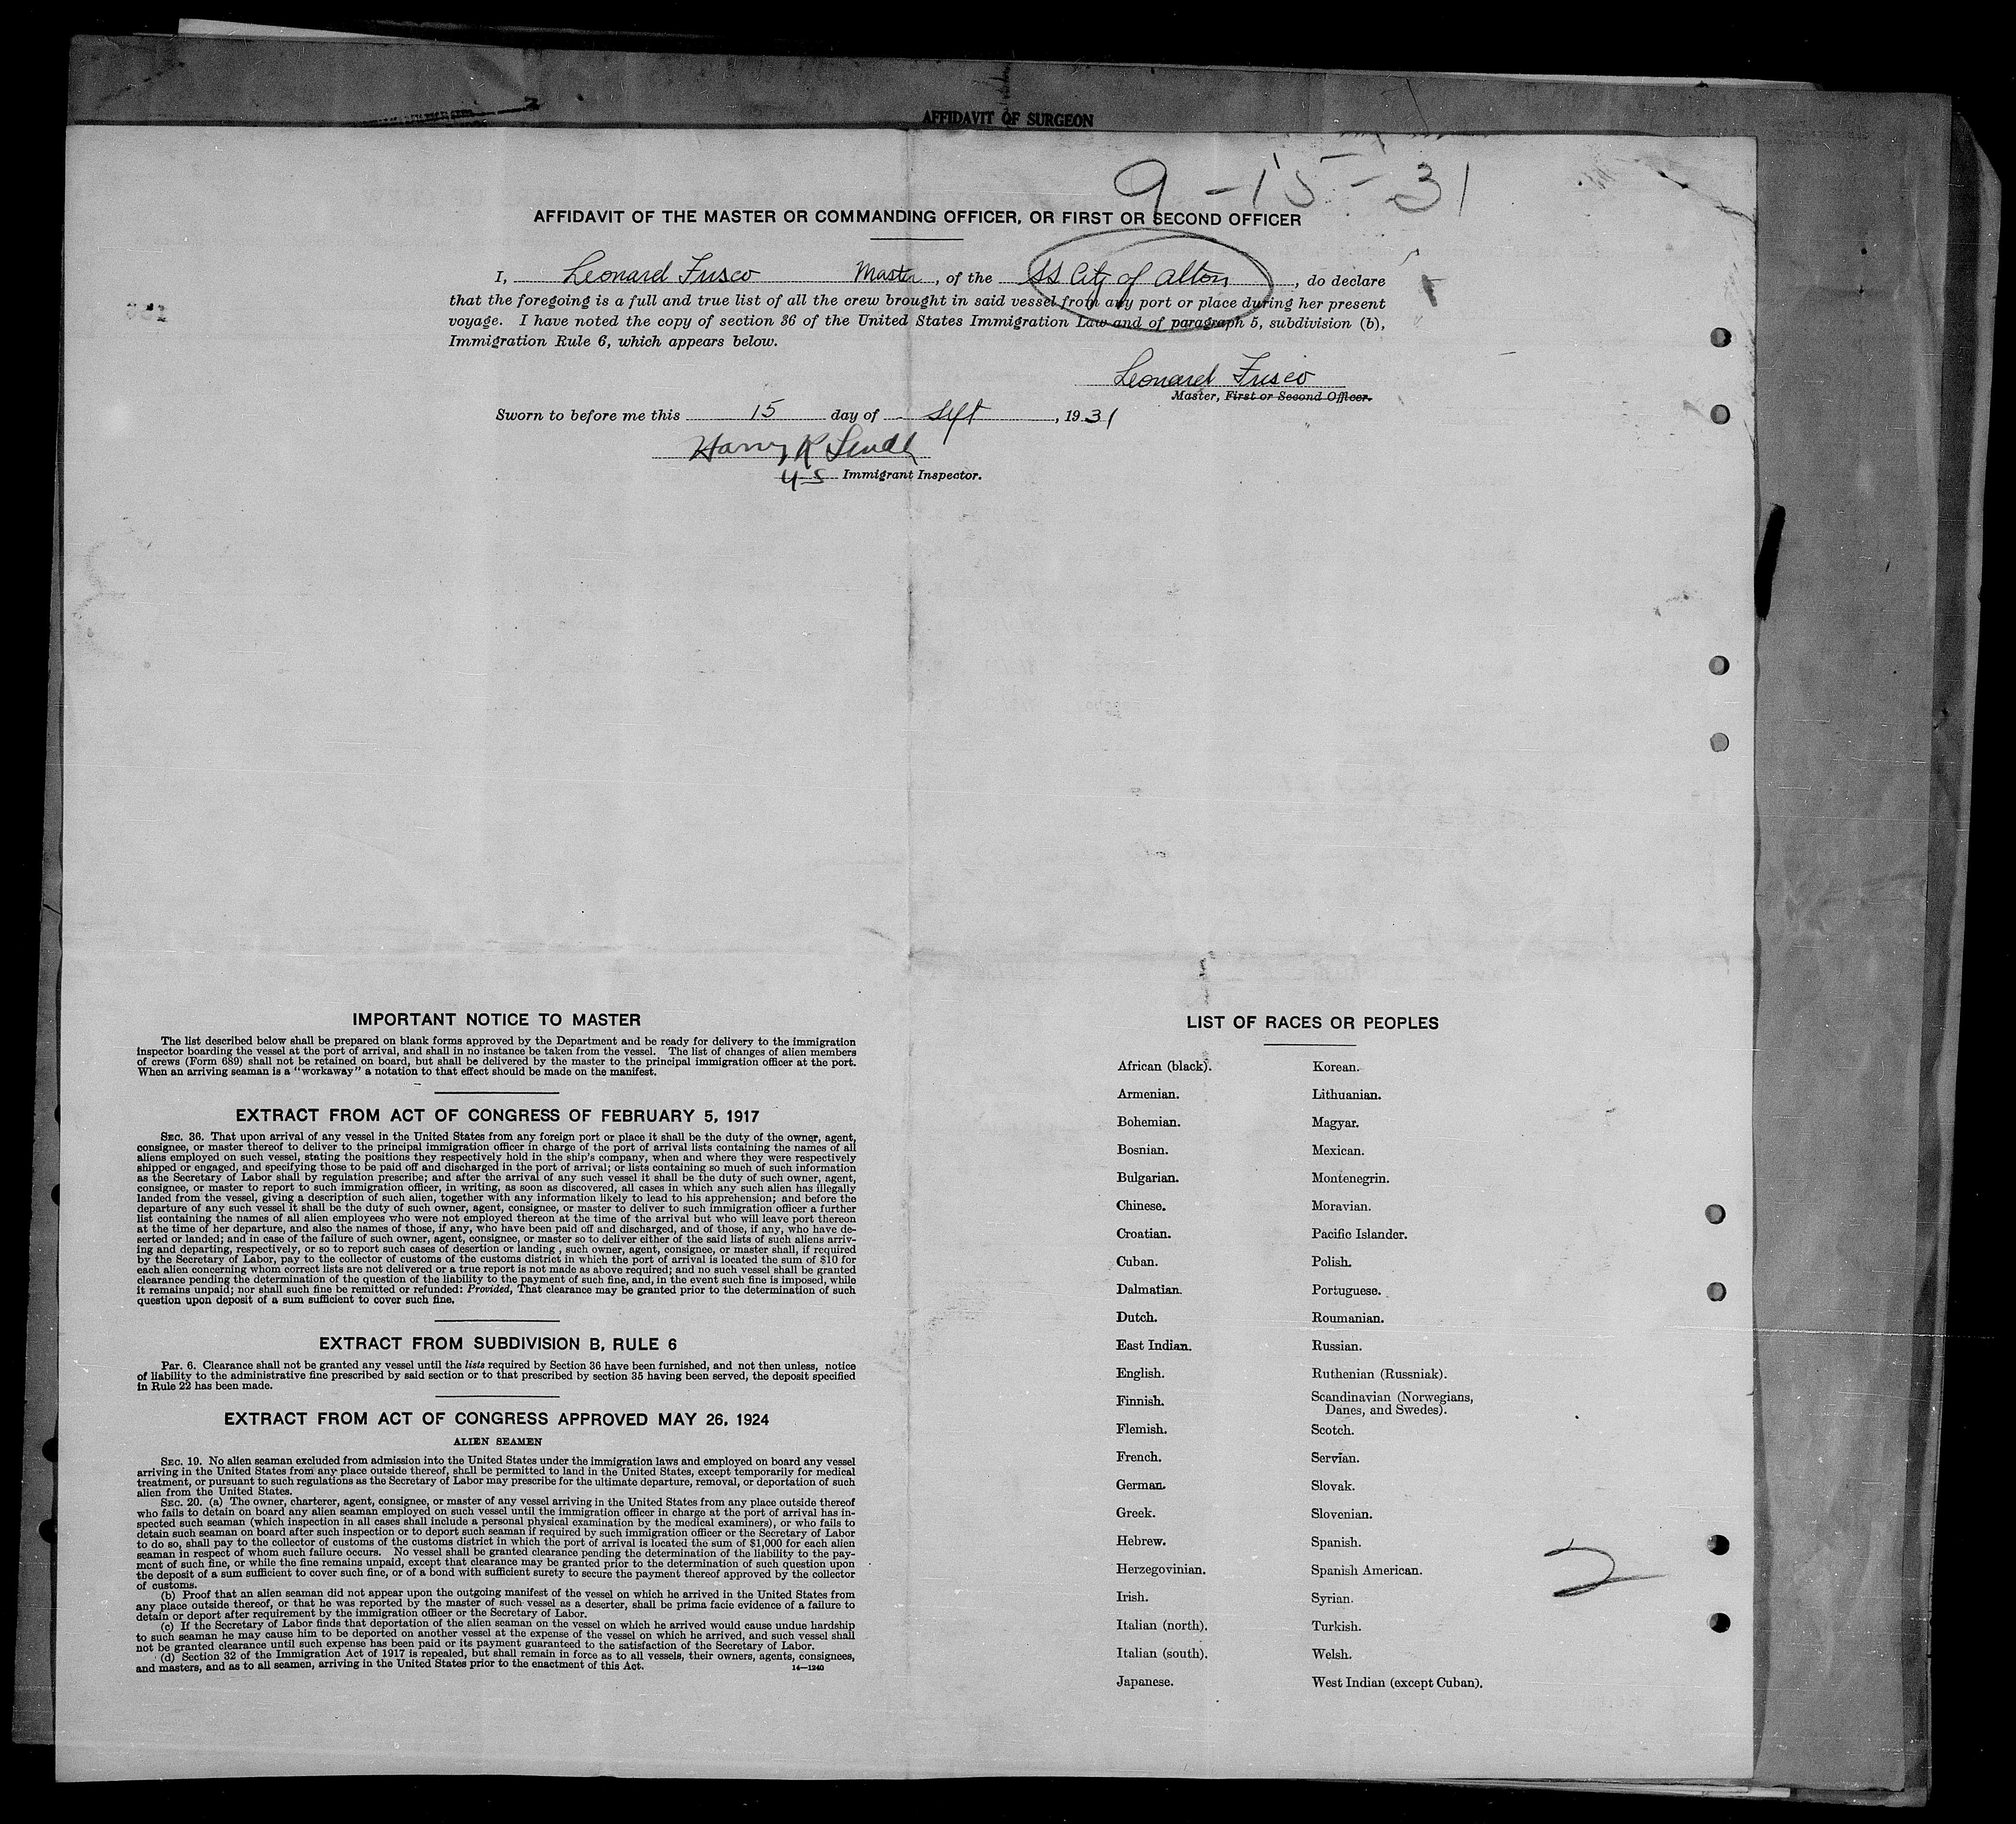 AFFIDAVIT OF SURGEON
9-15-31
AFFIDAVIT OF THE MASTER OR COMMANDING OFFICER, OR FIRST OR SECOND OFFICER
I, Leonard Fusco Master, of the SS City of Alton, do declare
that the foregoing is a full and true list of all the crew brought in said vessel from any port or place during her present
voyage. I have noted the copy of section 36 of the United States Immigration Law and of paragraph 5, subdivision (b),
Immigration Rule 6, which appears below.
Leonard Fusco
Master, First or Second Officer.
Sworn to before me this 15 day of Sept, 1931
Harry R
US Immigrant Inspector.
IMPORTANT NOTICE TO MASTER
The list described below shall be prepared on blank forms approved by the Department and be ready for delivery to the immigration
inspector boarding the vessel at the port of arrival, and shall in no instance be taken from the vessel. The list of changes of alien members
of crews (Form 689) shall not be retained on board, but shall be delivered by the master to the principal immigration officer at the port.
When an arriving seaman is a "workaway" a notation to that effect should be made on the manifest.
EXTRACT FROM ACT OF CONGRESS OF FEBRUARY 5, 1917
SEC. 36. That upon arrival of any vessel in the United States from any foreign port or place it shall be the duty of the owner, agent,
consignee, or master thereof to deliver to the principal immigration officer in charge of the port of arrival lists containing the names of all
aliens employed on such vessel, stating the positions they respectively hold in the ship's company, when and where they were respectively
shipped or engaged, and specifying those to be paid off and discharged in the port of arrival; or lists containing so much of such information
as the Secretary of Labor shall by regulation prescribe; and after the arrival of any such vessel it shall be the duty of such owner, agent,
consignee, or master to report to such immigration officer, in writing, as soon as discovered, all cases in which any such alien has illegally
landed from the vessel, giving a description of such alien, together with any information likely to lead to his apprehension; and before the
departure of any such vessel it shall be the duty of such owner, agent, consignee, or master to deliver to such immigration officer a further
list containing the names of all alien employees who were not employed thereon at the time of the arrival but who will leave port thereon
at the time of her departure, and also the names of those, if any, who have been paid off and discharged, and of those, if any, who have de-
serted or landed; and in case of the failure of such owner, agent, consignee, or master so to deliver either of the said lists of such aliens arriv-
ing and departing, respectively, or so to report such cases of desertion or landing , such owner, agent, consignee, or master shall, if required
by the Secretary of Labor, pay to the collector of customs of the customs district in which the port of arrival is located the sum of $10 for
each alien concerning whom correct lists are not delivered or a true report is not made as above required; and no such vessel shall be granted
clearance pending the determination of the question of the liability to the payment of such fine, and, in the event such fine is imposed, while
it remains unpaid; nor shall such fine be remitted or refunded: Provided, That clearance may be granted prior to the determination of such
question upon deposit of a sum sufficient to cover such fine.
EXTRACT FROM SUBDIVISION B, RULE 6
Par. 6. Clearance shall not be granted any vessel until the lists required by Section 36 have been furnished, and not then unless, notice
of liability to the administrative fine prescribed by said section or to that prescribed by section 35 having been served, the deposit specified
in Rule 22 has been made.
EXTRACT FROM ACT OF CONGRESS APPROVED MAY 26, 1924
ALIEN SEAMEN
SEC. 19. No alien seaman excluded from admission into the United States under the immigration laws and employed on board any vessel
arriving in the United States from any place outside thereof, shall be permitted to land in the United States, except temporarily for medical
treatment, or pursuant to such regulations as the Secretary of Labor may prescribe for the ultimate departure, removal, or deportation of such
alien from the United States.
SEC. 20. (a) The owner, charterer, agent, consignee, or master of any vessel arriving in the United States from any place outside thereof
who fails to detain on board any alien seaman employed on such vessel until the immigration officer in charge at the port of arrival has in-
spected such seaman (which inspection in all cases shall include a personal physical examination by the medical examiners), or who fails to
detain such seaman on board after such inspection or to deport such seaman if required by such immigration officer or the Secretary of Labor
to do so, shall pay to the collector of customs of the customs district in which the port of arrival is located the sum of $1,000 for each alien
seaman in respect of whom such failure occurs. No vessel shall be granted clearance pending the determination of the liability to the pay-
ment of such fine, or while the fine remains unpaid, except that clearance may be granted prior to the determination of such question upon
the deposit of a sum sufficient to cover such fine, or of a bond with sufficient surety to secure the payment thereof approved by the collector
of customs.
(b) Proof that an alien seaman did not appear upon the outgoing manifest of the vessel on which he arrived in the United States from
any place outside thereof, or that he was reported by the master of such vessel as a deserter, shall be prima facie evidence of a failure to
detain or deport after requirement by the immigration officer or the Secretary of Labor.
(c) If the Secretary of Labor finds that deportation of the alien seaman on the vessel on which he arrived would cause undue hardship
to such seaman he may cause him to be deported on another vessel at the expense of the vessel on which he arrived, and such vessel shall
not be granted clearance until such expense has been paid or its payment guaranteed to the satisfaction of the Secretary of Labor.
(d) Section 32 of the Immigration Act of 1917 is repealed, but shall remain in force as to all vessels, their owners, agents, consignees,
and masters, and as to all seamen, arriving in the United States prior to the enactment of this Act. 14—1240
LIST OF RACES OR PEOPLES
African (black).
Armenian.
Bohemian.
Bosnian.
Bulgarian.
Chinese.
Croatian.
Cuban.
Dalmatian.
Dutch.
East Indian.
English.
Finnish.
Flemish.
French.
German.
Greek.
Hebrew.
Herzegovinian.
Irish.
Italian (north).
Italian (south).
Japanese.
Korean.
Lithuanian.
Magyar.
Mexican.
Montenegrin.
Moravian.
Pacific Islander.
Polish.
Portuguese.
Roumanian.
Russian.
Ruthenian (Russniak).
Scandinavian (Norwegians,
Danes, and Swedes).
Scotch.
Servian.
Slovak.
Slovenian.
Spanish.
Spanish American.
Syrian.
Turkish.
Welsh.
West Indian (except Cuban).
2